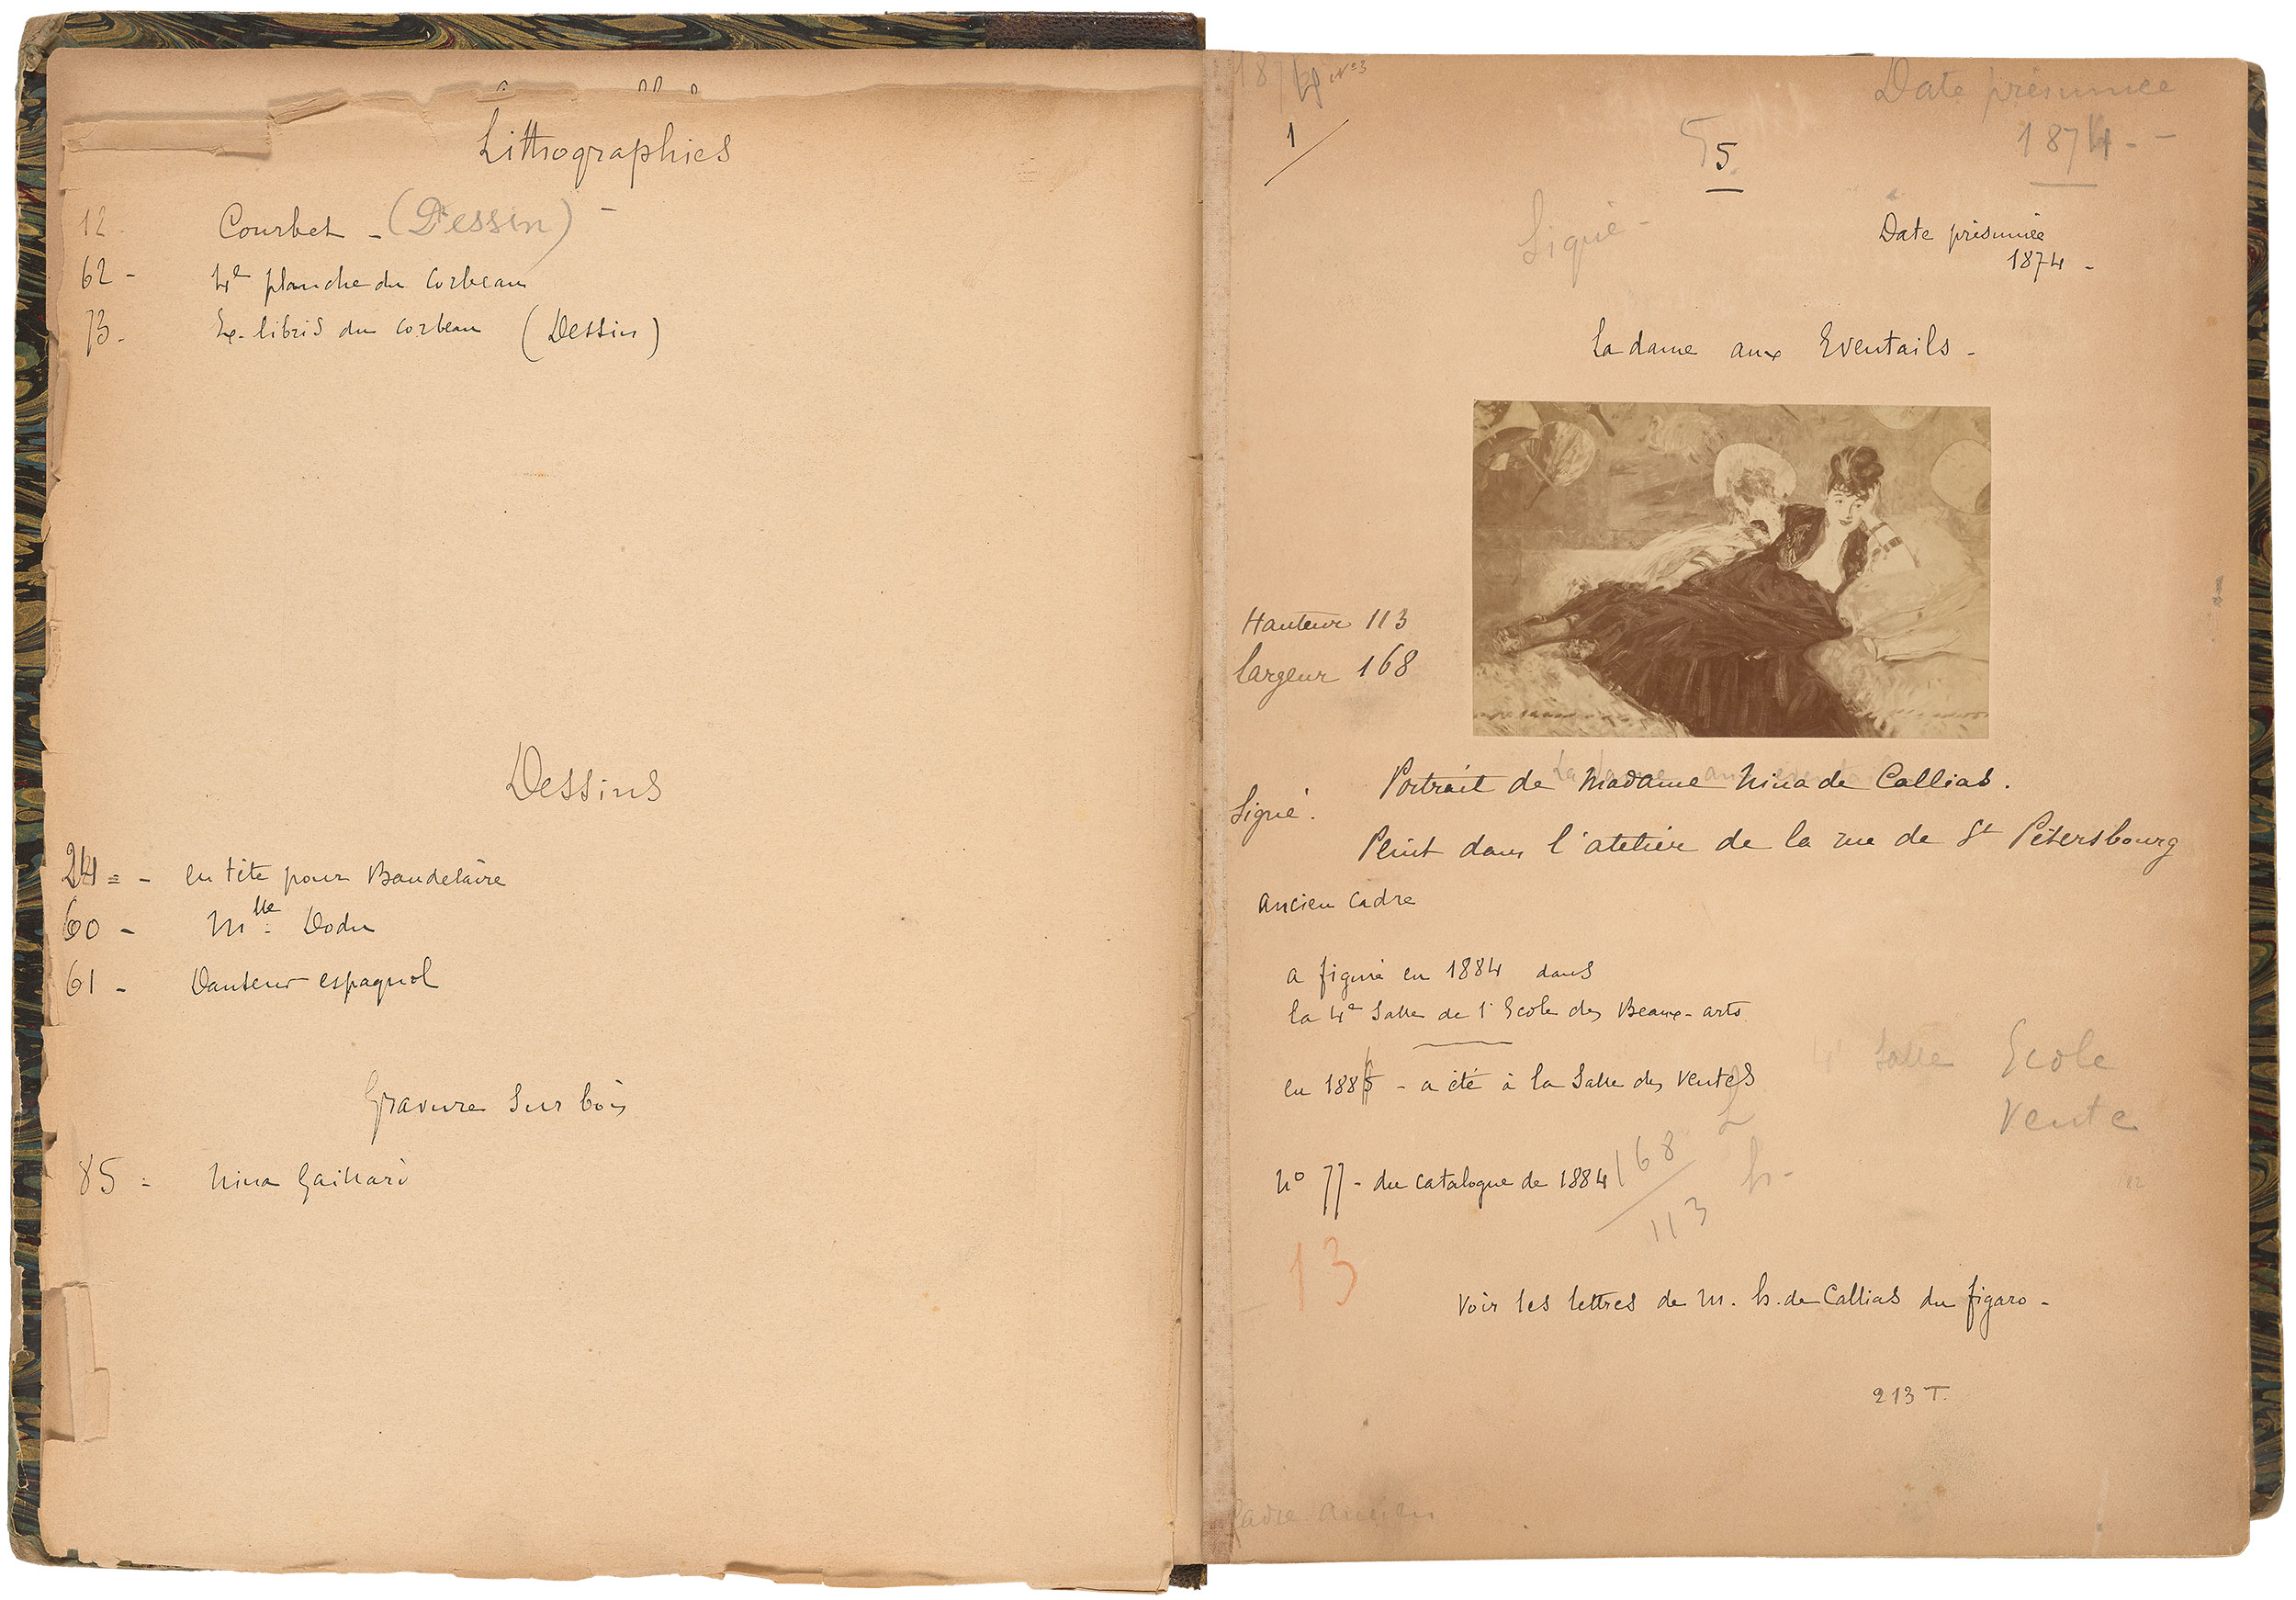 Lithographies
12 - Courbet - (Dessin) -
62 - 4e planche du Corbeau
73 - Ex-libris du corbeau (Dessin)
Dessins
24 = - en tête pour Baudelaire
60 - Mlle Dodu
61 - Danseur espagnol
Gravure sur bois
85 - Nina Gaillard
1874 No 3
1
5
5
Date présumée
1874 -
Signé -
Date présumée
1874 -
La dame aux Eventails -
Hauteur 113
largeur 168
La dame aux
Portrait de Madame Nina de Callias.
Signé.
Peint dans l'atelier de la rue de St Pétersbourg
ancien cadre
a figuré en 1884 dans
la 4e Salle de l'Ecole des Beaux-arts
4e Salle Ecole
en 188 - a été à la Salle des Ventes
Vente
L
168
113
h -
No 77 - du catalogue de 1884
182
13
Voir les lettres de M. h. de Callias du figaro -
213 T.
Cadre ancien